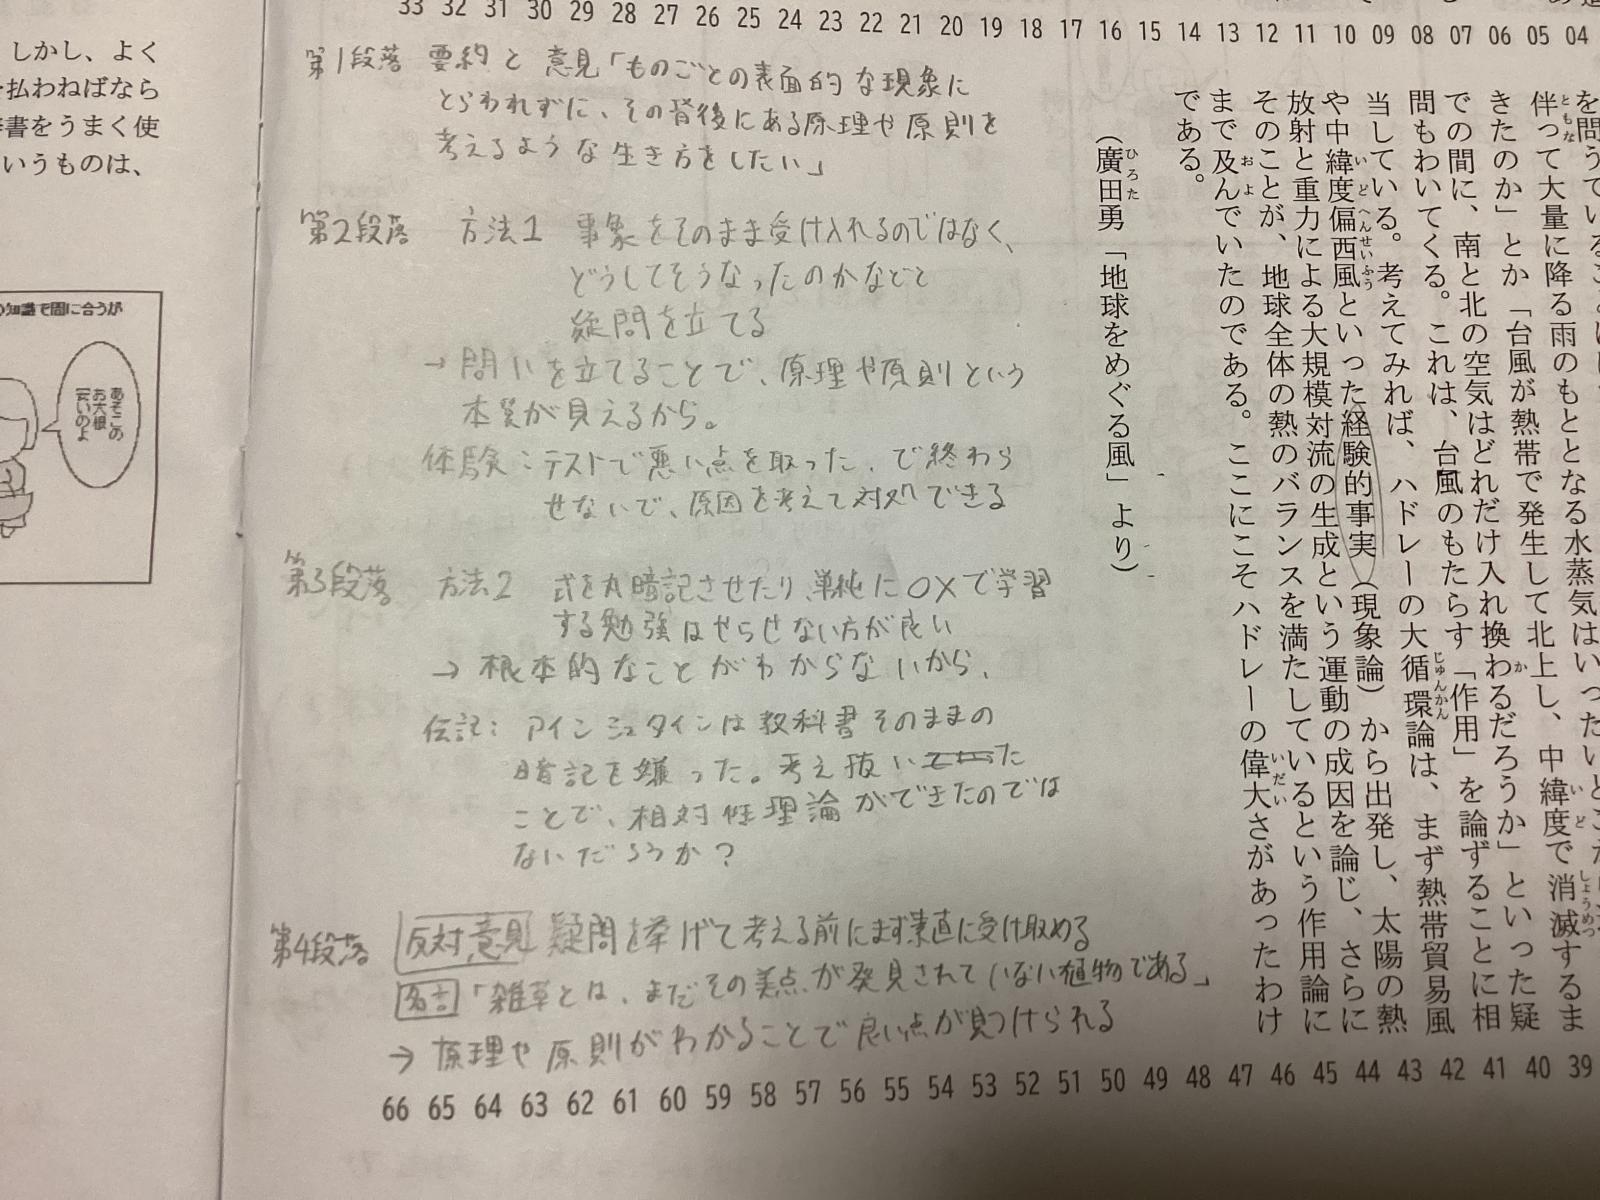 しかし、よく
払わねばなら
書をうまく使
いうものは、
知識で間に合うが
あそこの
お大根
安いのよ
33 32 31 30 29 28 27 26 25 24 23 22 21 20 19 18 17 16 15 14 13 12 11 10 09 08 07 06 05 04
第1段落 要約と意見「ものごとの表面的な現象に
とらわれずに、その背後にある原理や原則を
考えるような生き方をしたい」
第2段落 方法1 事象をそのまま受け入れるのではなく、
どうしてそうなったのかなどと
疑問を立てる
→ 問いを立てることで、原理や原則という
本質が見えるから。
体験:テストで悪い点を取った、で終わら
せないで、原因を考えて対処できる
第3段落 方法2 式を丸暗記させたり、単純に○×で学習
する勉強はやらせない方が良い
→ 根本的なことがわからないから、
伝記:アインシュタインは教科書そのままの
暗記を嫌った。考え抜いた
ことで、相対性理論ができたのでは
ないだろうか?
第4段落 反対意見 疑問を挙げて考える前にまず素直に受け取める
名言「雑草とは、まだその美点が発見されていない植物である」
→ 原理や原則がわかることで良い点が見つけられる
を問うている
伴って大量に降る雨のもととなる水蒸気はいったいどこか
きたのか」とか「台風が熱帯で発生して北上し、中緯度で消滅するま
での間に、南と北の空気はどれだけ入れ換わるだろうか」といった疑
問もわいてくる。これは、台風のもたらす「作用」を論ずることに相
当している。考えてみれば、ハドレーの大循環論は、まず熱帯貿易風
や中緯度偏西風といった経験的事実(現象論)から出発し、太陽の熱
放射と重力による大規模対流の生成という運動の成因を論じ、さらに
そのことが、地球全体の熱のバランスを満たしているという作用論に
まで及んでいたのである。ここにこそハドレーの偉大さがあったわけ
である。
(廣田勇「地球をめぐる風」より)
66 65 64 63 62 61 60 59 58 57 56 55 54 53 52 51 50 49 48 47 46 45 44 43 42 41 40 39